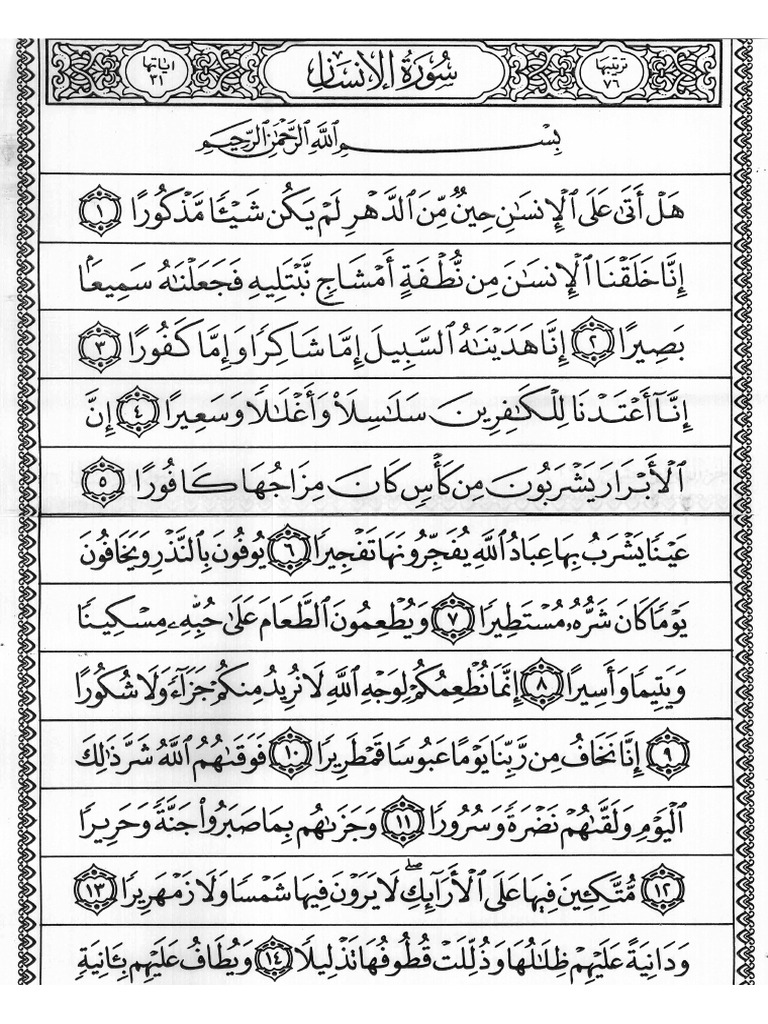 ترتيبها ٧٦ سُورَةُ الإِنسَانِ اياتها ٣١
بِسْمِ اللَّهِ الرَّحْمَٰنِ الرَّحِيمِ
هَلْ أَتَىٰ عَلَى ٱلْإِنسَٰنِ حِينٌ مِّنَ ٱلدَّهْرِ لَمْ يَكُن شَيْـًٔا مَّذْكُورًا ١
إِنَّا خَلَقْنَا ٱلْإِنسَٰنَ مِن نُّطْفَةٍ أَمْشَاجٍ نَّبْتَلِيهِ فَجَعَلْنَٰهُ سَمِيعًۢا
بَصِيرًا ٢ إِنَّا هَدَيْنَٰهُ ٱلسَّبِيلَ إِمَّا شَاكِرًا وَإِمَّا كَفُورًا ٣
إِنَّآ أَعْتَدْنَا لِلْكَٰفِرِينَ سَلَٰسِلَا۟ وَأَغْلَٰلًا وَسَعِيرًا ٤ إِنَّ
ٱلْأَبْرَارَ يَشْرَبُونَ مِن كَأْسٍ كَانَ مِزَاجُهَا كَافُورًا ٥
عَيْنًا يَشْرَبُ بِهَا عِبَادُ ٱللَّهِ يُفَجِّرُونَهَا تَفْجِيرًا ٦ يُوفُونَ بِٱلنَّذْرِ وَيَخَافُونَ
يَوْمًا كَانَ شَرُّهُۥ مُسْتَطِيرًا ٧ وَيُطْعِمُونَ ٱلطَّعَامَ عَلَىٰ حُبِّهِۦ مِسْكِينًا
وَيَتِيمًا وَأَسِيرًا ٨ إِنَّمَا نُطْعِمُكُمْ لِوَجْهِ ٱللَّهِ لَا نُرِيدُ مِنكُمْ جَزَآءً وَلَا شُكُورًا
٩ إِنَّا نَخَافُ مِن رَّبِّنَا يَوْمًا عَبُوسًا قَمْطَرِيرًا ١٠ فَوَقَىٰهُمُ ٱللَّهُ شَرَّ ذَٰلِكَ
ٱلْيَوْمِ وَلَقَّىٰهُمْ نَضْرَةً وَسُرُورًا ١١ وَجَزَىٰهُم بِمَا صَبَرُوا۟ جَنَّةً وَحَرِيرًا
١٢ مُّتَّكِـِٔينَ فِيهَا عَلَى ٱلْأَرَآئِكِ ۖ لَا يَرَوْنَ فِيهَا شَمْسًا وَلَا زَمْهَرِيرًا ١٣
وَدَانِيَةً عَلَيْهِمْ ظِلَٰلُهَا وَذُلِّلَتْ قُطُوفُهَا تَذْلِيلًا ١٤ وَيُطَافُ عَلَيْهِم بِـَٔانِيَةٍ